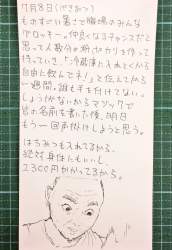 7月8日(くもり)
ものすごい暑さで職場のみんな
グロッキー。仲良くなるチャンスだと
思って人数分の
持っていき、「冷蔵庫に入れとくから
自由に飲んでネ!」と伝えてから
一週間。誰も手を付けてない。
しょうがないからマジックで
皆の名前を書いた後、明日
もう一回声掛けしようと思う。
はちみつも入れてるから
絶対身体にもいいし、
2300円かかってるから。